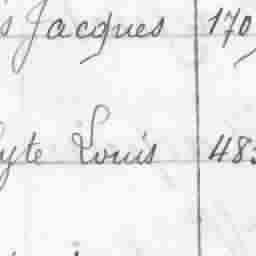 Jacques 170
yte Louis 48